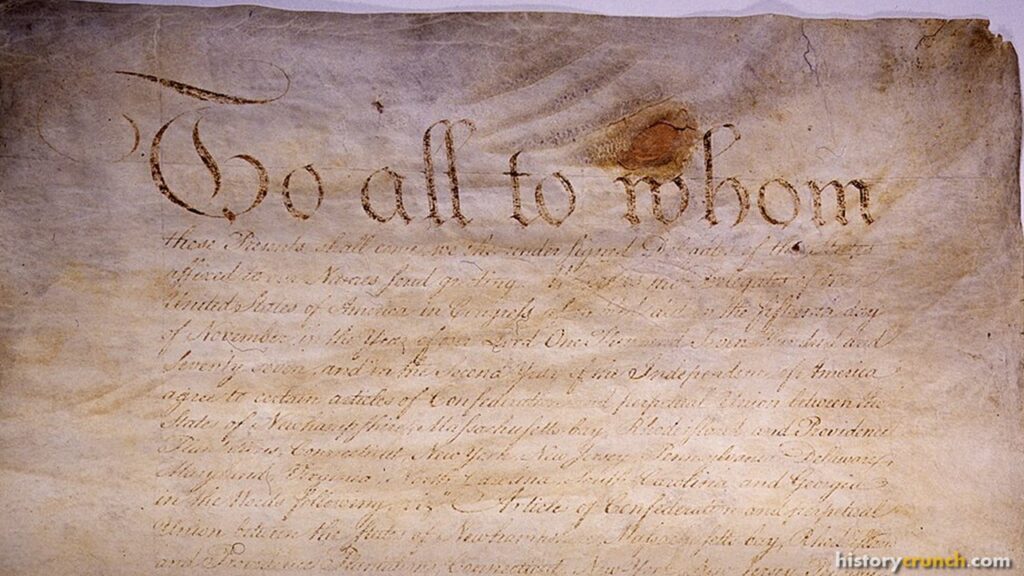 To all to whom
these Presents shall come, we the under signed Delegates of the States
affixed to our Names send greeting. Whereas the Delegates of the
United States of America in Congress assembled did on the fifteenth day
of November in the Year of our Lord One Thousand Seven Hundred and
Seventy seven, and in the Second Year of the Independence of America
agree to certain articles of Confederation and perpetual Union between the
States of Newhampshire, Massachusetts bay, Rhodeisland and Providence
Plantations, Connecticut, New York, New Jersey, Pennsylvania, Delaware,
Maryland, Virginia, North Carolina, South Carolina and Georgia
in the Words following, viz. Articles of Confederation and perpetual
Union between the States of Newhampshire, Massachusetts bay, Rhodeisland
and Providence Plantations, Connecticut, New York, New Jersey,
historycrunch.com